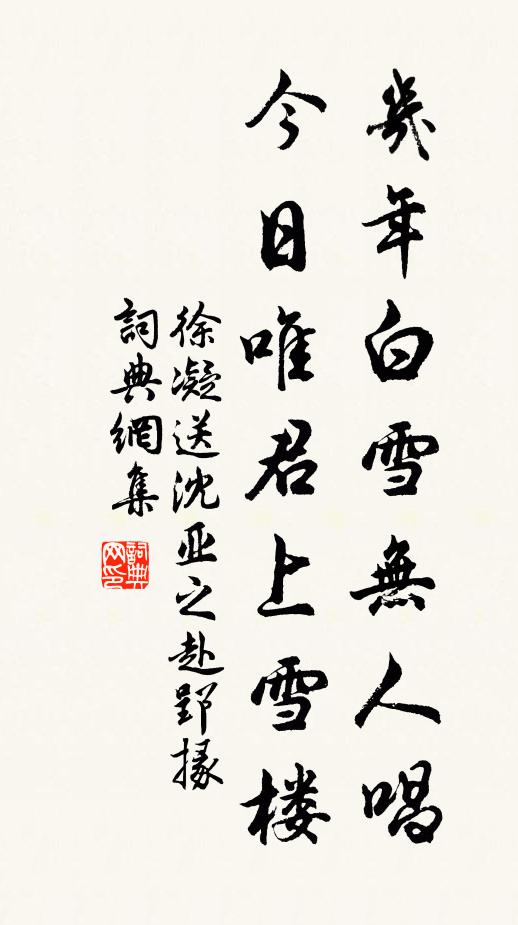 幾年白雪無人唱
今日唯君上雪楼
徐凝送沈亚之赴郢掾
詞典網集
詞典网印